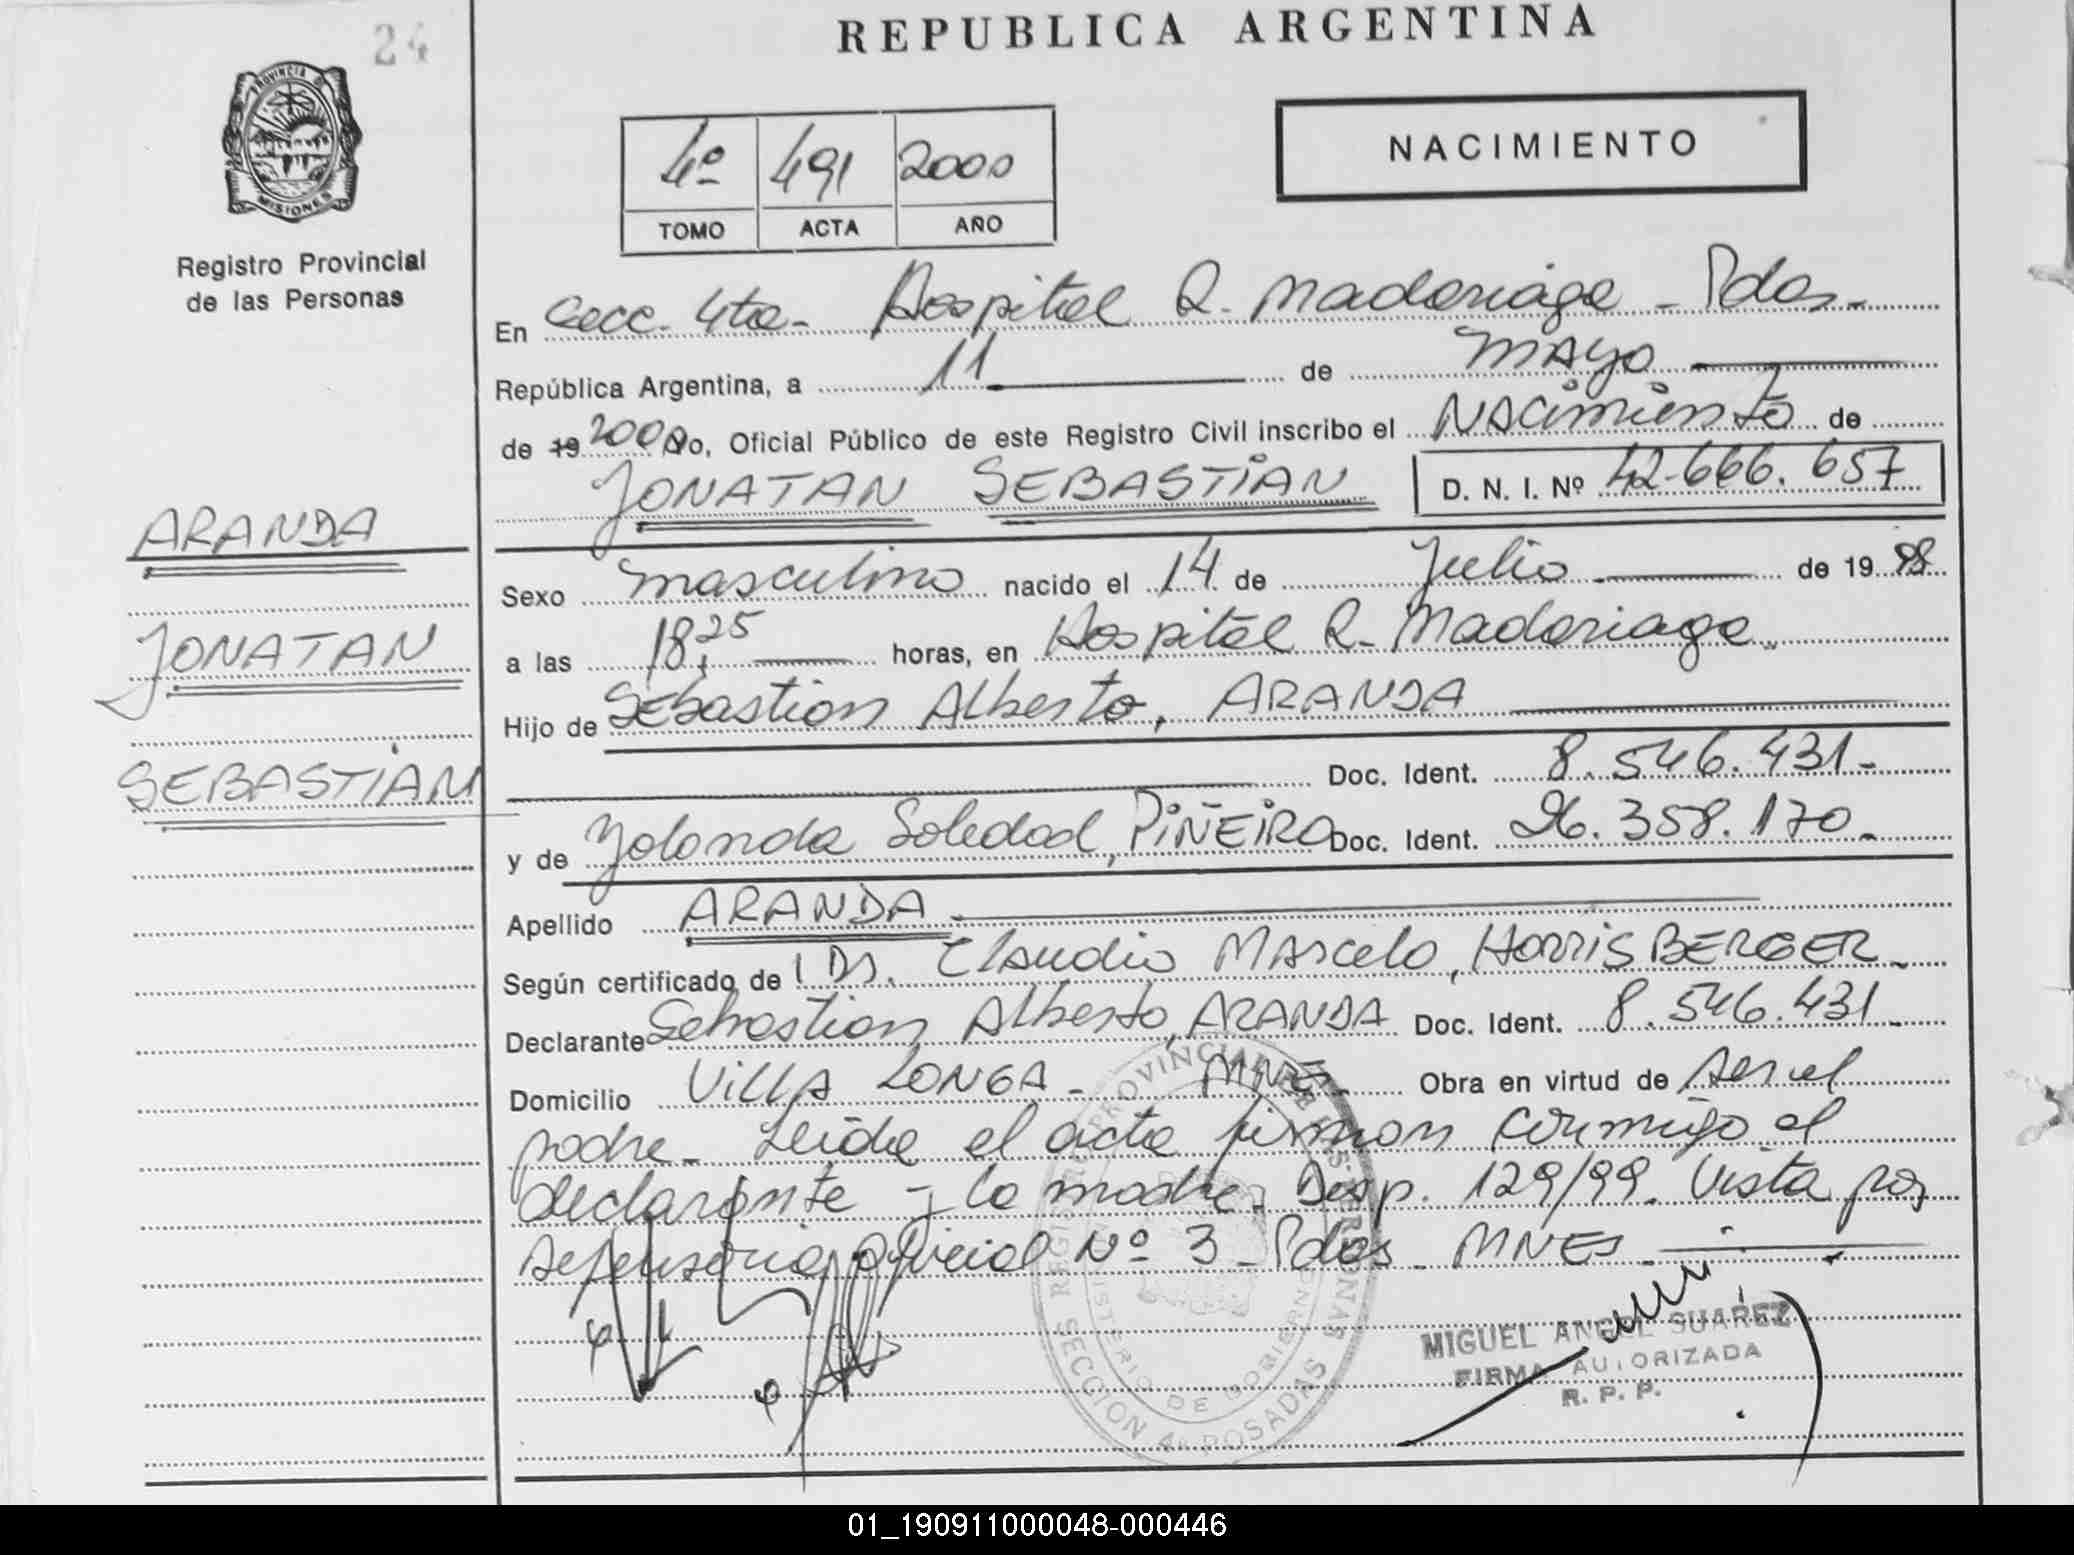 24
REPUBLICA ARGENTINA
PROVINCIA DE
MISIONES
Registro Provincial
de las Personas
4º 491 2000
TOMO ACTA AÑO
NACIMIENTO
En Secc. 4ta- Hospital R. Madariaga - Pdas-
República Argentina, a 11 de MAYO
de 19 2000 Yo, Oficial Público de este Registro Civil inscribo el NACimiento de
JONATAN SEBASTIAN D. N. I. Nº 42.666.657
ARANDA
JONATAN
SEBASTIAN
Sexo masculino nacido el 14 de Julio de 19 98
a las 18,25 horas, en Hospital R. Madariaga
Hijo de Sebastian Alberto, ARANDA
Doc. Ident. 8.546.431-
y de Yolanda Soledad, PIÑEIRO Doc. Ident. 26.358.170-
Apellido ARANDA-
Según certificado de Dr. Claudio Marcelo, HORRISBERGER-
Declarante Sebastian Alberto, ARANDA Doc. Ident. 8.546.431-
Domicilio VILLA LONGA- MNES- Obra en virtud de ser el
padre- Leida el acta firman conmigo el
declarante y la madre. Disp. 129/99. Vista por
defensoria oficial Nº 3- Pdas- MNES-
REGISTRO PROVINCIAL DE LAS PERSONAS
MINISTERIO DE GOBIERNO
SECCION 4ª POSADAS
MIGUEL ANGEL SUAREZ
FIRMA AUTORIZADA
R. P. P.
01_190911000048-000446